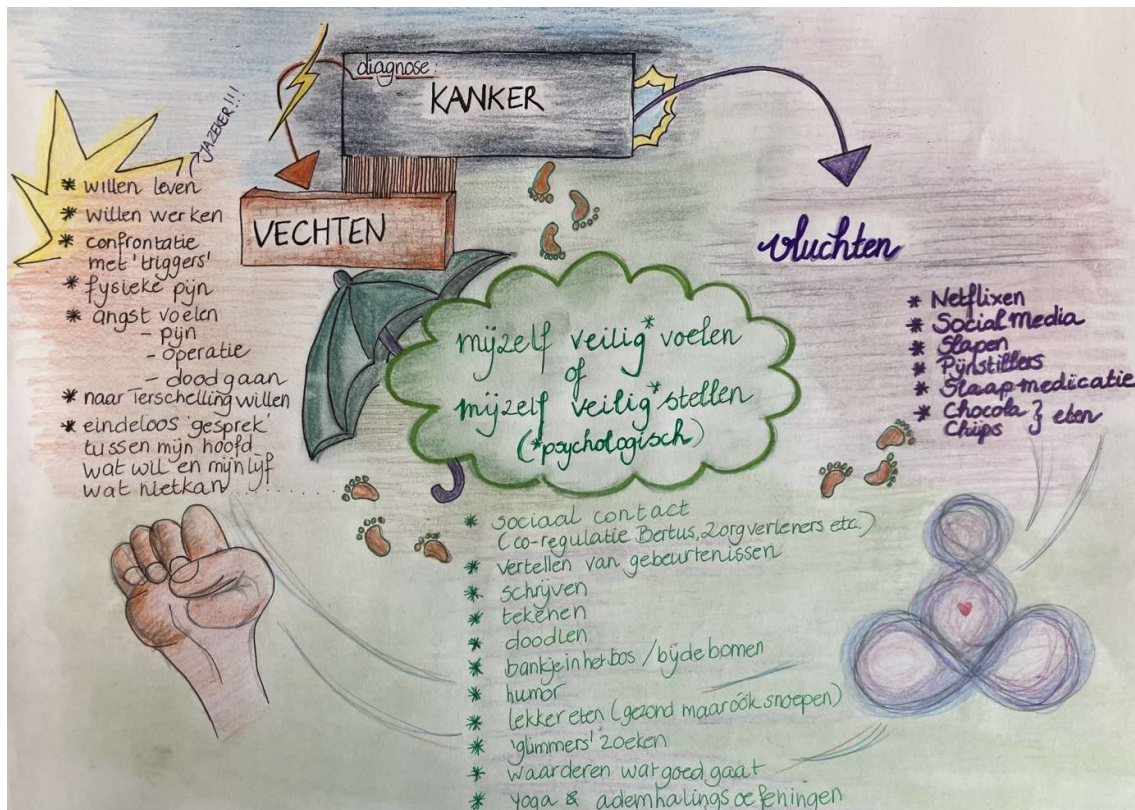 diagnose:
KANKER
JAZEKER!!!
* willen leven
* willen werken
* confrontatie
met 'triggers'
* fysieke pijn
* angst voelen
- pijn
- operatie
- doodgaan
* naar Terschelling willen
* eindeloos 'gesprek'
tussen mijn hoofd
wat wil en mijn lijf
wat niet kan..........
VECHTEN
vluchten
* Netflixen
* Social media
* Slapen
* Pijnstillers
* Slaapmedicatie
* Chocola } eten
Chips
mijzelf veilig* voelen
of
mijzelf veilig* stellen
(*psychologisch)
* sociaal contact
(co-regulatie Bertus, zorgverleners etc.)
* vertellen van gebeurtenissen
* schrijven
* tekenen
* doodlen
* bankje in het bos / bij de bomen
* humor
* lekker eten (gezond maar óók snoepen)
* 'glimmers' zoeken
* waarderen wat goed gaat
* yoga & ademhalingsoefeningen